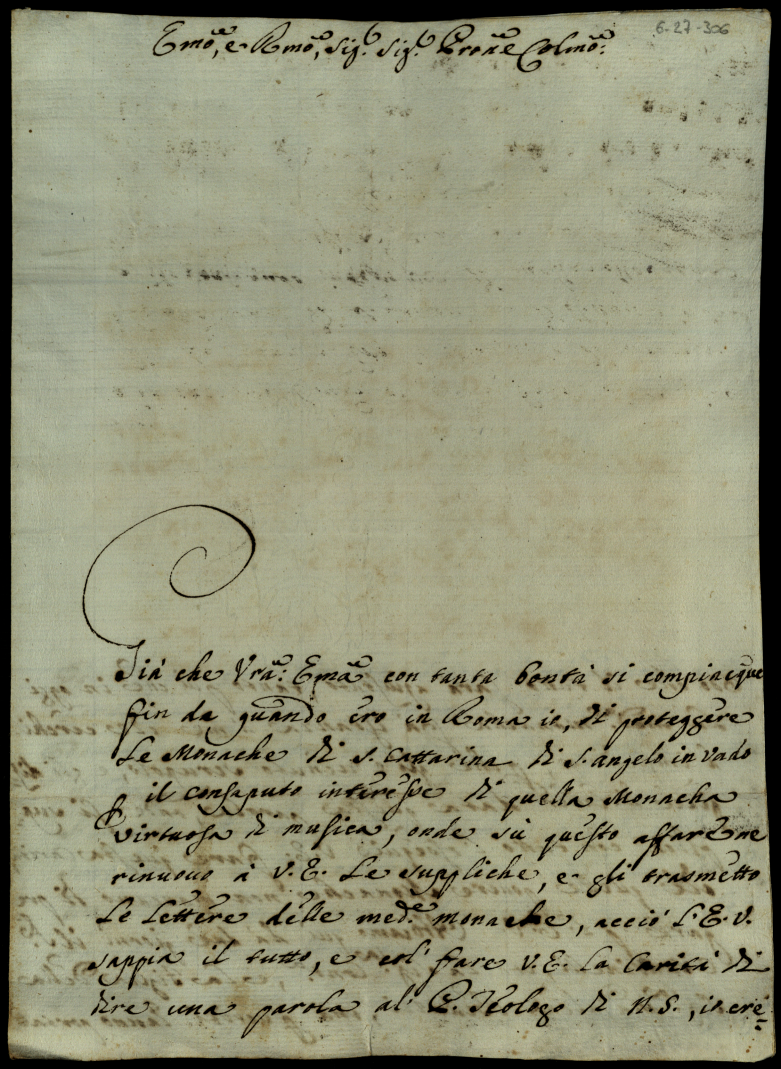 6-27-306
Emo, e Rmo, Sig. Sig. Prone Colmo:
Già che Vra: Emza con tanta bontà si compiacque
fin da quando ero in Roma io, di proteggere
le Monache di S. Cattarina di S. Angelo in Vado
il consaputo interesse di quella Monacha
virtuosa di musica, onde sù questo affare ne
rinuovo à V. E. le suppliche, e gli trasmetto
le lettere delle mede monache, acciò l'E. V.
sappia il tutto, e col' fare V. E. la carità di
dire una parola al' P. Teologo di N. S., io cre=